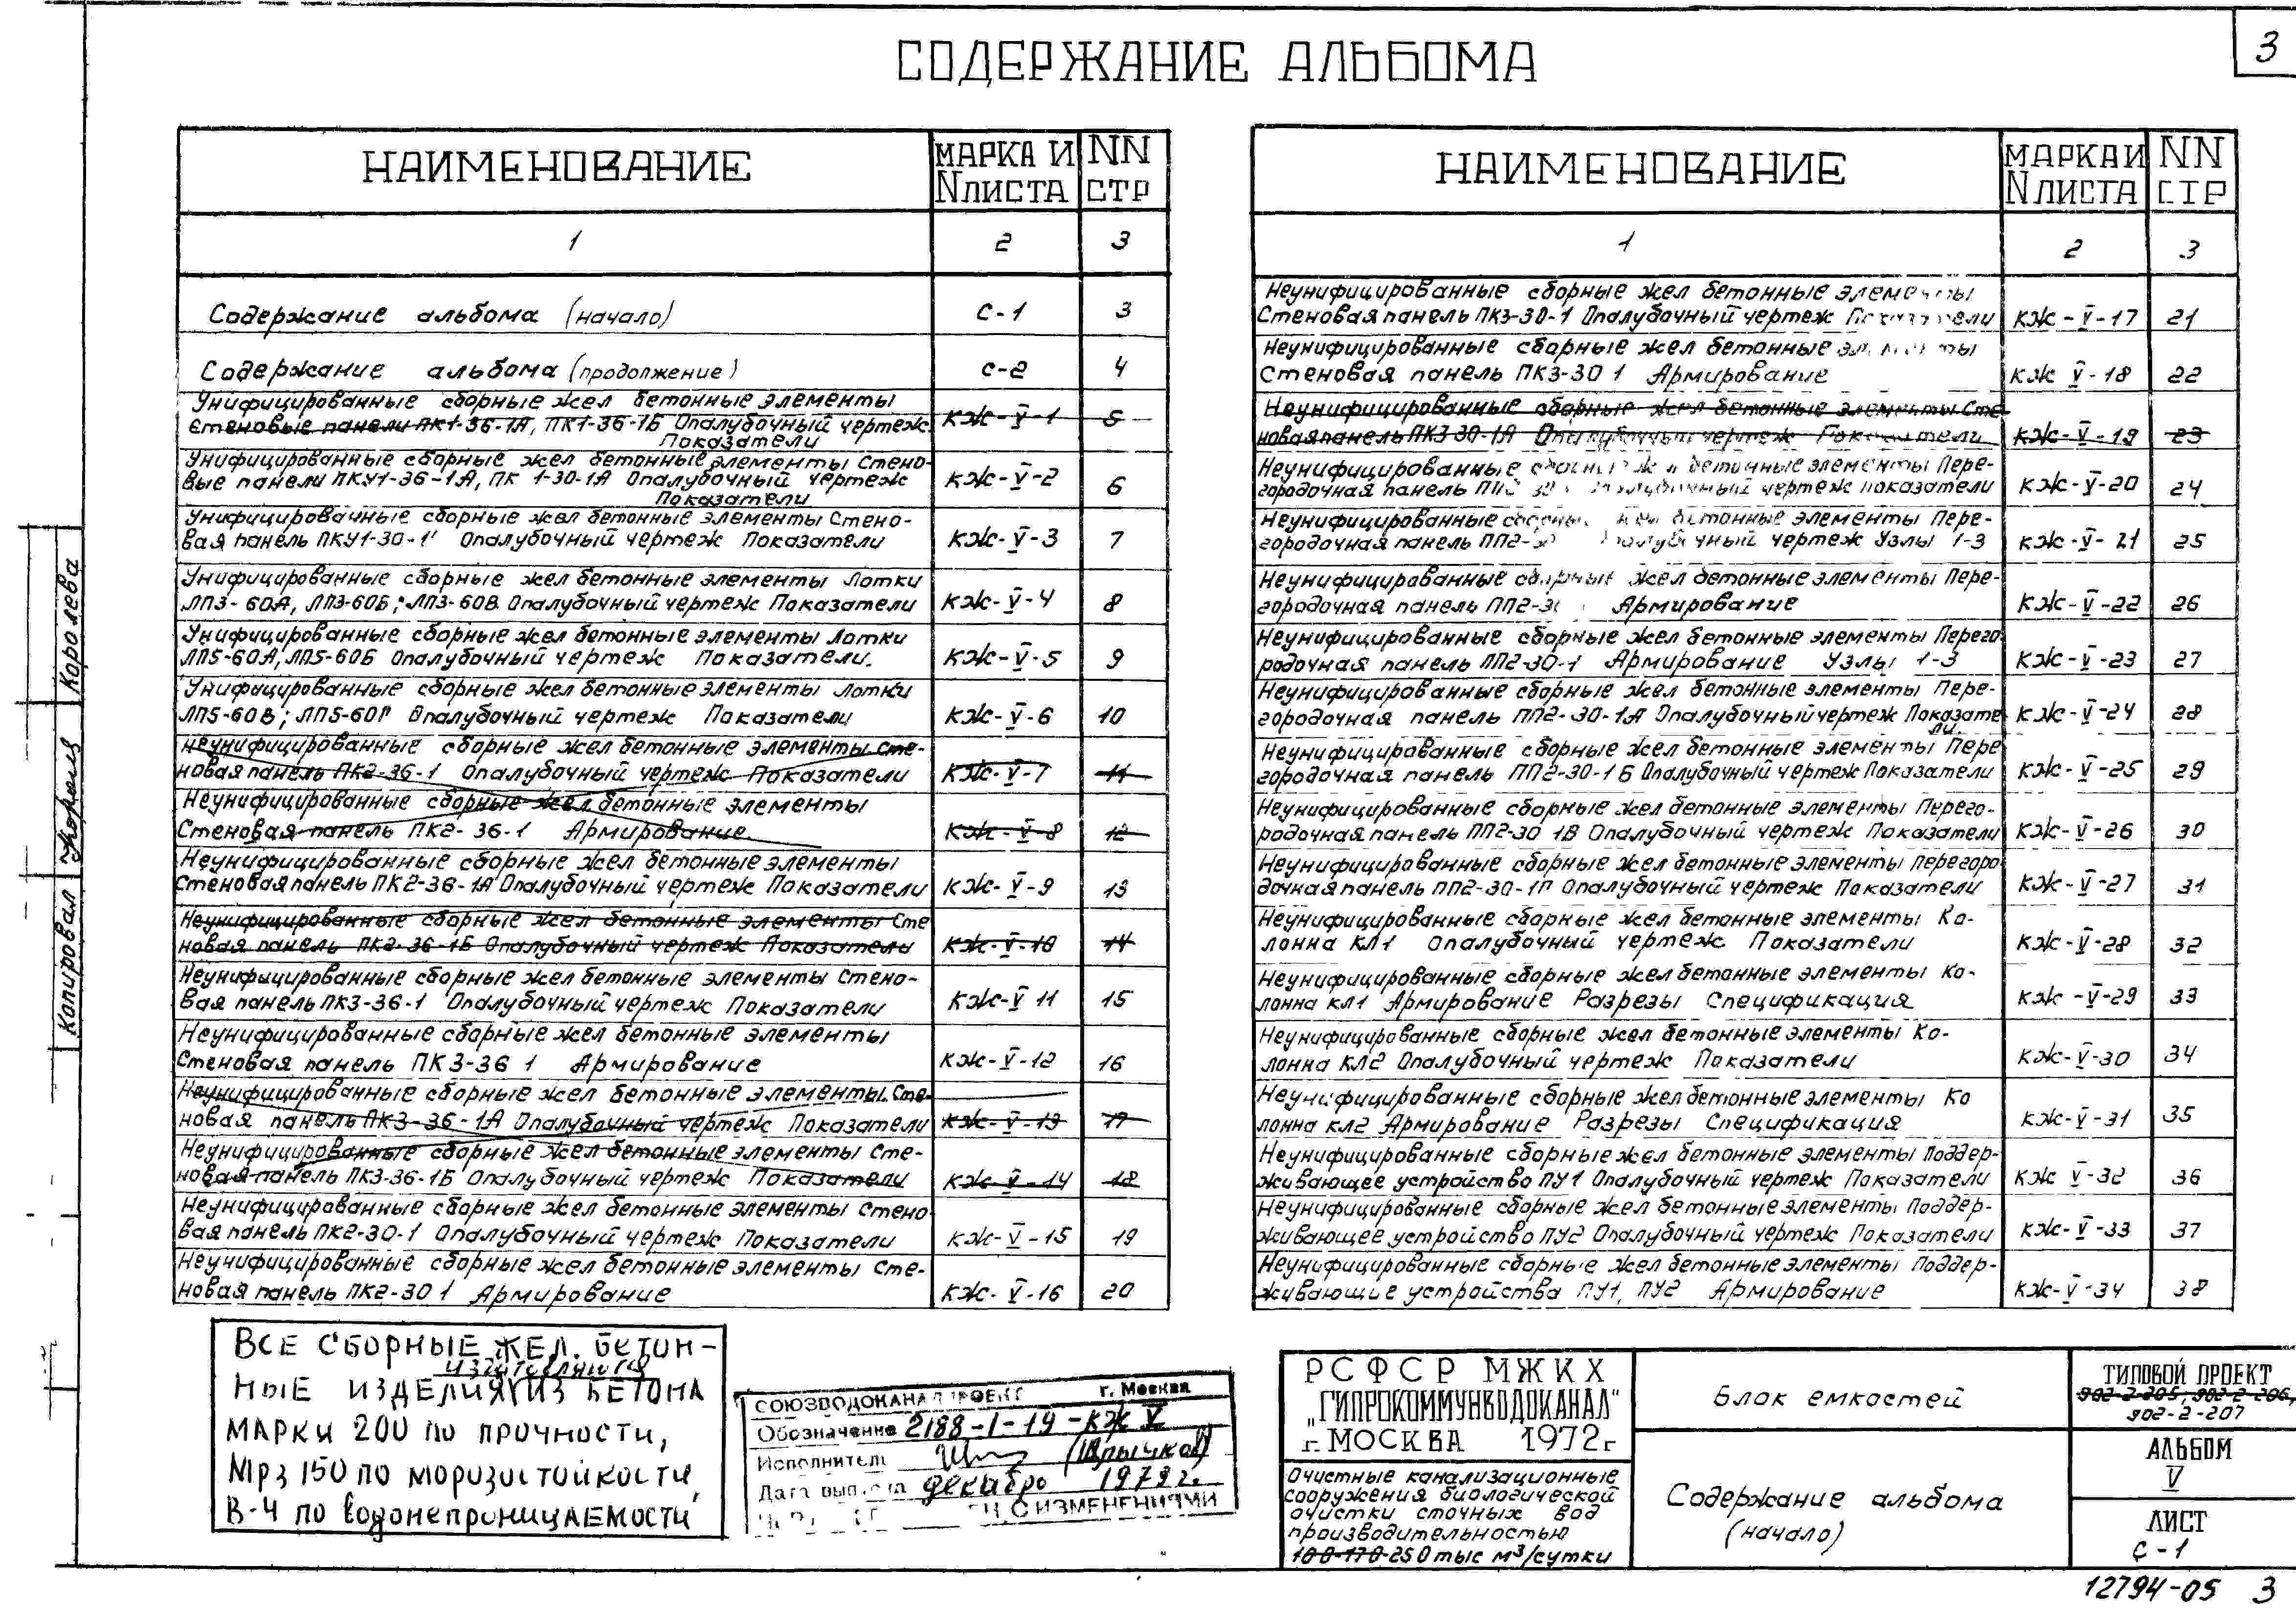 3
СОДЕРЖАНИЕ АЛЬБОМА
НАИМЕНОВАНИЕ
МАРКА И
N ЛИСТА
NN
СТР
1
2
3
Содержание альбома (начало)
С-1
3
Содержание альбома (продолжение)
С-2
4
Унифицированные сборные жел бетонные элементы
Стеновые панели ПК1-36-1А, ПК1-36-1Б Опалубочный чертеж
Показатели
КЖ-V-1
5
Унифицированные сборные жел бетонные элементы Стено-
вые панели ПКУ1-36-1А, ПК 1-30-1А Опалубочный чертеж
Показатели
КЖ-V-2
6
Унифицированные сборные жел бетонные элементы Стено-
вая панель ПКУ1-30-1 Опалубочный чертеж Показатели
КЖ-V-3
7
Унифицированные сборные жел бетонные элементы Лотки
ЛП3-60А, ЛП3-60Б; ЛП3-60В Опалубочный чертеж Показатели
КЖ-V-4
8
Унифицированные сборные жел бетонные элементы Лотки
ЛП5-60А, ЛП5-60Б Опалубочный чертеж Показатели.
КЖ-V-5
9
Унифицированные сборные жел бетонные элементы Лотки
ЛП5-60В; ЛП5-60Г Опалубочный чертеж Показатели
КЖ-V-6
10
Неунифицированные сборные жел бетонные элементы Сте-
новая панель ПК2-36-1 Опалубочный чертеж Показатели
КЖ-V-7
11
Неунифицированные сборные жел бетонные элементы
Стеновая панель ПК2-36-1 Армирование
КЖ-V-8
12
Неунифицированные сборные жел бетонные элементы
Стеновая панель ПК2-36-1А Опалубочный чертеж Показатели
КЖ-V-9
13
Неунифицированные сборные жел бетонные элементы Сте
новая панель ПК2-36-1Б Опалубочный чертеж Показатели
КЖ-V-10
14
Неунифицированные сборные жел бетонные элементы Стено-
вая панель ПК3-36-1 Опалубочный чертеж Показатели
КЖ-V 11
15
Неунифицированные сборные жел бетонные элементы
Стеновая панель ПК 3-36 1 Армирование
КЖ-V-12
16
Неунифицированные сборные жел бетонные элементы Сте-
новая панель ПК3-36-1А Опалубочный чертеж Показатели
КЖ-V-13
17
Неунифицированные сборные жел бетонные элементы Сте-
новая панель ПК3-36-1Б Опалубочный чертеж Показатели
КЖ-V-14
18
Неунифицированные сборные жел бетонные элементы Стено
вая панель ПК2-30-1 Опалубочный чертеж Показатели
КЖ-V-15
19
Неунифицированные сборные жел бетонные элементы Сте-
новая панель ПК2-30 1 Армирование
КЖ-V-16
20
НАИМЕНОВАНИЕ
МАРКА И
N ЛИСТА
NN
СТР
1
2
3
Неунифицированные сборные жел бетонные элементы
Стеновая панель ПК3-30-1 Опалубочный чертеж Показатели
КЖ-V-17
21
Неунифицированные сборные жел бетонные элементы
Стеновая панель ПК3-30 1 Армирование
КЖ V-18
22
Неунифицированные сборные жел бетонные элементы Сте
новая панель ПК3 30-1А Опалубочный чертеж Показатели
КЖ-V-19
23
Неунифицированные сборные жел бетонные элементы Пере-
городочная панель Опалубочный чертеж показатели
КЖ-V-20
24
Неунифицированные сборные жел бетонные элементы Пере-
городочная панель Опалубочный чертеж Узлы 1-3
КЖ-V-21
25
Неунифицированные сборные жел бетонные элементы Пере-
городочная панель Армирование
КЖ-V-22
26
Неунифицированные сборные жел бетонные элементы Перего
родочная панель ПП2-30-1 Армирование Узлы 1-3
КЖ-V-23
27
Неунифицированные сборные жел бетонные элементы Пере-
городочная панель ПП2-30-1А Опалубочный чертеж Показате
ли.
КЖ-V-24
28
Неунифицированные сборные жел бетонные элементы Пере
городочная панель ПП2-30-1Б Опалубочный чертеж Показатели
КЖ-V-25
29
Неунифицированные сборные жел бетонные элементы Перего-
родочная панель ПП2-30 1В Опалубочный чертеж Показатели
КЖ-V-26
30
Неунифицированные сборные жел бетонные элементы Перегоро
дочная панель ПП2-30-1Г Опалубочный чертеж Показатели
КЖ-V-27
31
Неунифицированные сборные жел бетонные элементы Ко-
лонна КЛ1 Опалубочный чертеж Показатели
КЖ-V-28
32
Неунифицированные сборные жел бетонные элементы Ко-
лонна КЛ1 Армирование Разрезы Спецификация
КЖ-V-29
33
Неунифицированные сборные жел бетонные элементы Ко-
лонна КЛ2 Опалубочный чертеж Показатели
КЖ-V-30
34
Неунифицированные сборные жел бетонные элементы Ко
лонна КЛ2 Армирование Разрезы Спецификация
КЖ-V-31
35
Неунифицированные сборные жел бетонные элементы Поддер-
живающее устройство ПУ1 Опалубочный чертеж Показатели
КЖ V-32
36
Неунифицированные сборные жел бетонные элементы Поддер-
живающее устройство ПУ2 Опалубочный чертеж Показатели
КЖ-V-33
37
Неунифицированные сборные жел бетонные элементы Поддер-
живающие устройства ПУ1, ПУ2 Армирование
КЖ-V-34
38
Копировал
Королева
ВСЕ СБОРНЫЕ ЖЕЛ. БЕТОН-
изготовляются
НЫЕ ИЗДЕЛИЯ ИЗ БЕТОНА
МАРКИ 200 ПО ПРОЧНОСТИ,
Мрз 150 ПО МОРОЗОСТОЙКОСТИ,
В-4 ПО ВОДОНЕПРОНИЦАЕМОСТИ
СОЮЗВОДОКАНАЛПРОЕКТ г. Москва
Обозначение 2188-1-19-КЖ V
Исполнитель
Дата выпуска декабрь 1979г.
С ИЗМЕНЕНИЯМИ
РСФСР МЖКХ
„ГИПРОКОММУНВОДОКАНАЛ"
г. МОСКВА 1972г
Очистные канализационные
сооружения биологической
очистки сточных вод
производительностью
100-170-250 тыс м³/сутки
Блок емкостей
Содержание альбома
(начало)
ТИПОВОЙ ПРОЕКТ
902-2-205, 902-2-206,
902-2-207
АЛЬБОМ
V
ЛИСТ
С-1
12794-05 3